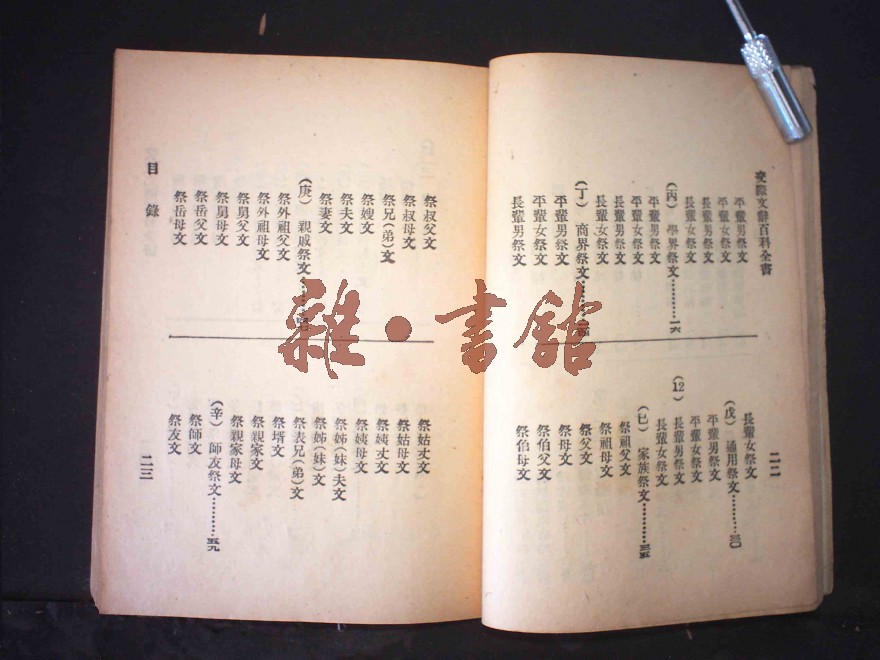 交際文辭百科全書
平輩男祭文
平輩女祭文
長輩男祭文
長輩女祭文
(丙) 學界祭文………一六
平輩男祭文
平輩女祭文
長輩男祭文
長輩女祭文
(丁) 商界祭文………
平輩男祭文
平輩女祭文
長輩男祭文
長輩女祭文
(戊) 通用祭文………三〇
平輩男祭文
平輩女祭文
(12) 長輩男祭文
長輩女祭文
(巳) 家族祭文………三五
祭祖父文
祭祖母文
祭父文
祭母文
祭伯父文
祭伯母文
二二
祭叔父文
祭叔母文
祭兄(弟)文
祭嫂文
祭夫文
祭妻文
(庚) 親戚祭文………
祭外祖父文
祭外祖母文
祭舅父文
祭舅母文
祭岳父文
祭岳母文
目錄
祭姑丈文
祭姑母文
祭姨丈文
祭姨母文
祭姊(妹)夫文
祭姊(妹)文
祭表兄(弟)文
祭壻文
祭親家文
祭親家母文
(辛) 師友祭文………五九
祭師文
祭友文
二三
雜·書舘